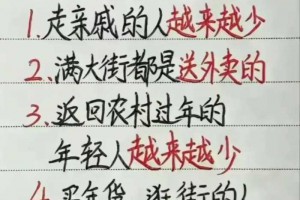 1.走亲戚的人越来越少
2、满大街都是送外卖的
3、返回农村过年的
年轻人越来越少
4.买年货、逛街的人